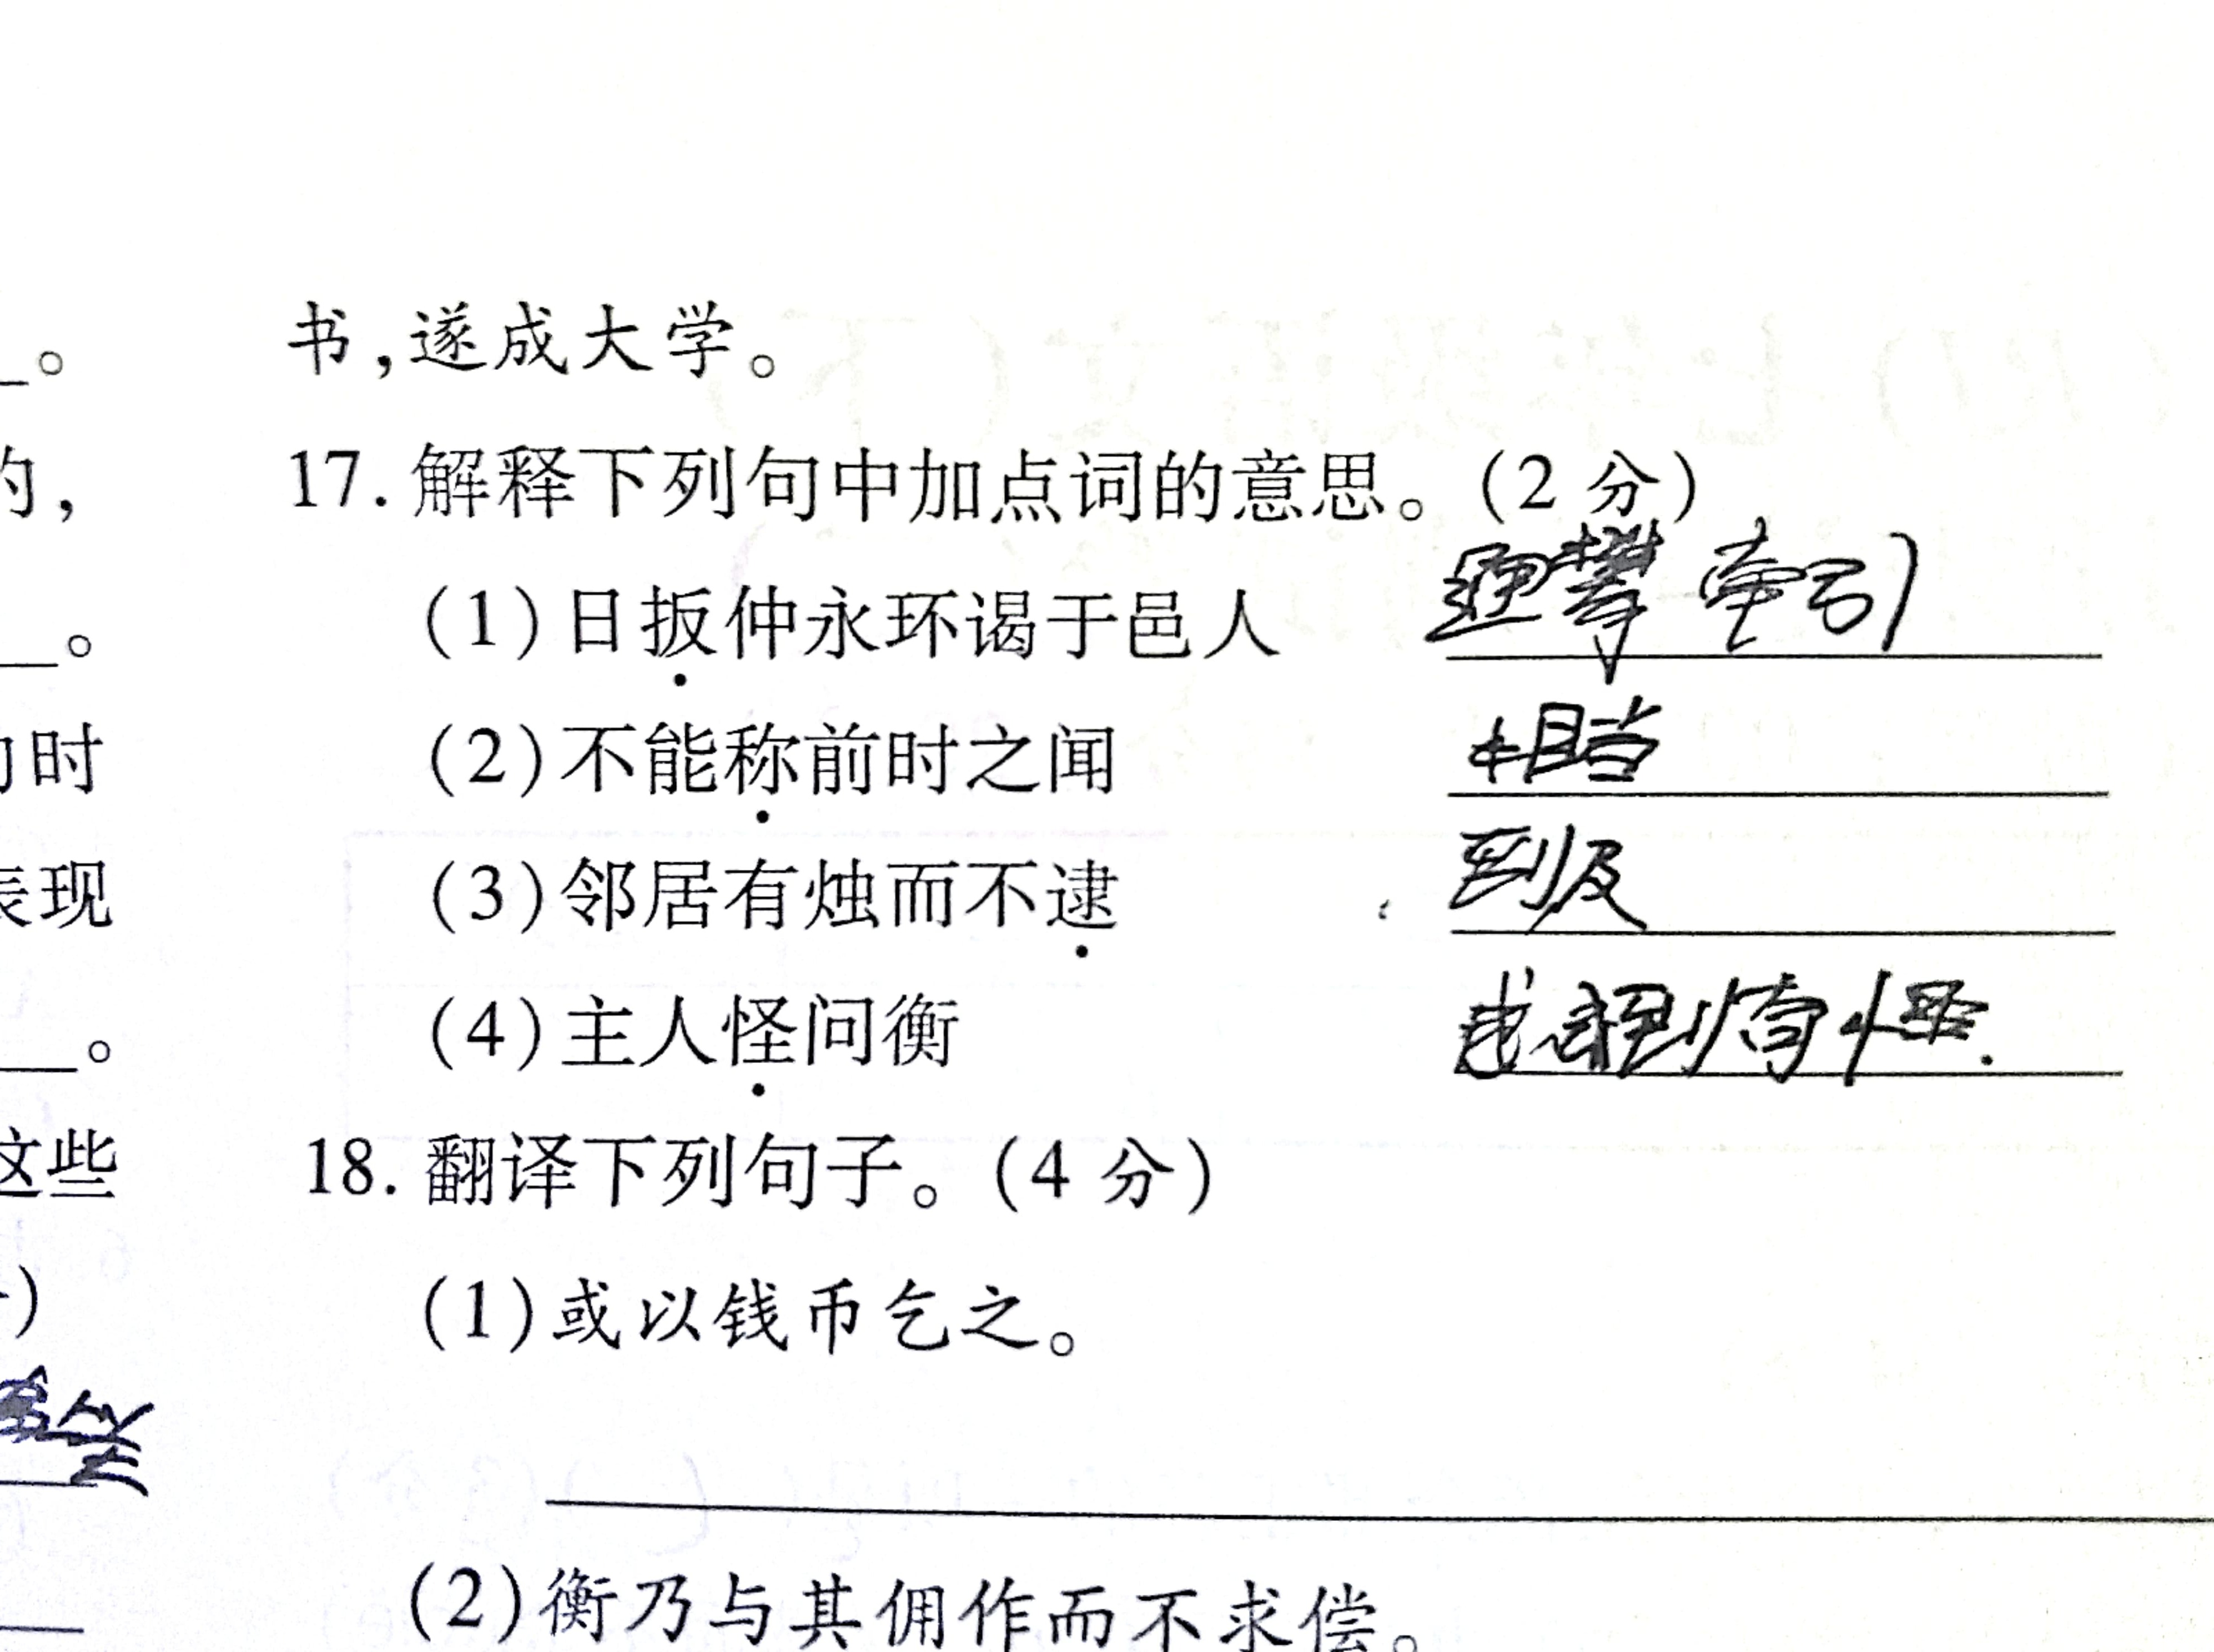 。
书,遂成大学。
的,
17. 解释下列句中加点词的意思。(2 分)
(1)日扳仲永环谒于邑人 牵引
。
(2)不能称前时之闻 相当
时
(3)邻居有烛而不逮 到及
表现
(4)主人怪问衡 感到奇怪.
。
18. 翻译下列句子。(4 分)
这些
(1)或以钱币乞之。
)
(2)衡乃与其佣作而不求偿。